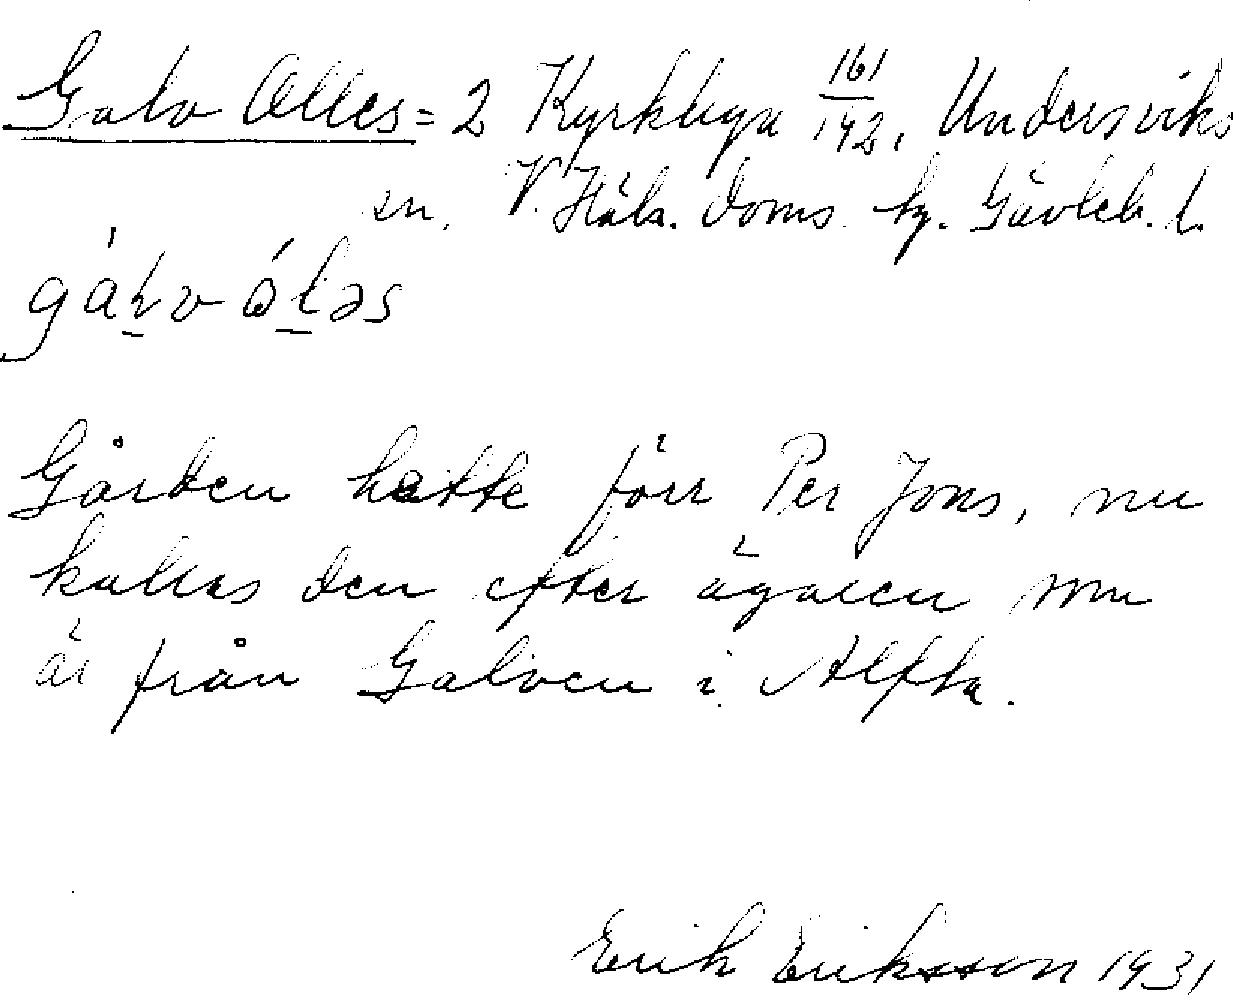 Galv Olles = 2 Kyrkbyn 161/192, Undersviks
sn. V. Häls. doms. hg. Gävleb. l.
Gården hette förr Per Jons, nu
kallas den efter ägaren som
är från Galven i Alfta.
Erik Eriksson 1931